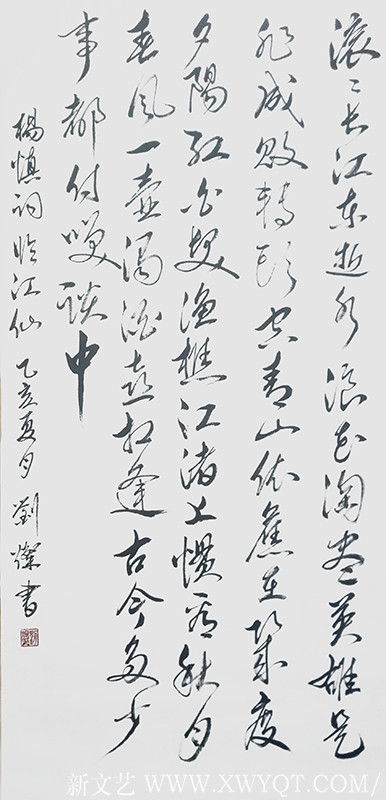 滚滚长江东逝水浪花淘尽英雄是
非成败转头空青山依旧在几度
夕陽红白发渔樵江渚上惯看秋月
春风一壶浊酒喜相逢古今多少
事都付笑谈中
楊慎词临江仙 乙亥夏月 劉燦书
新文艺 WWW.XWYQT.COM/